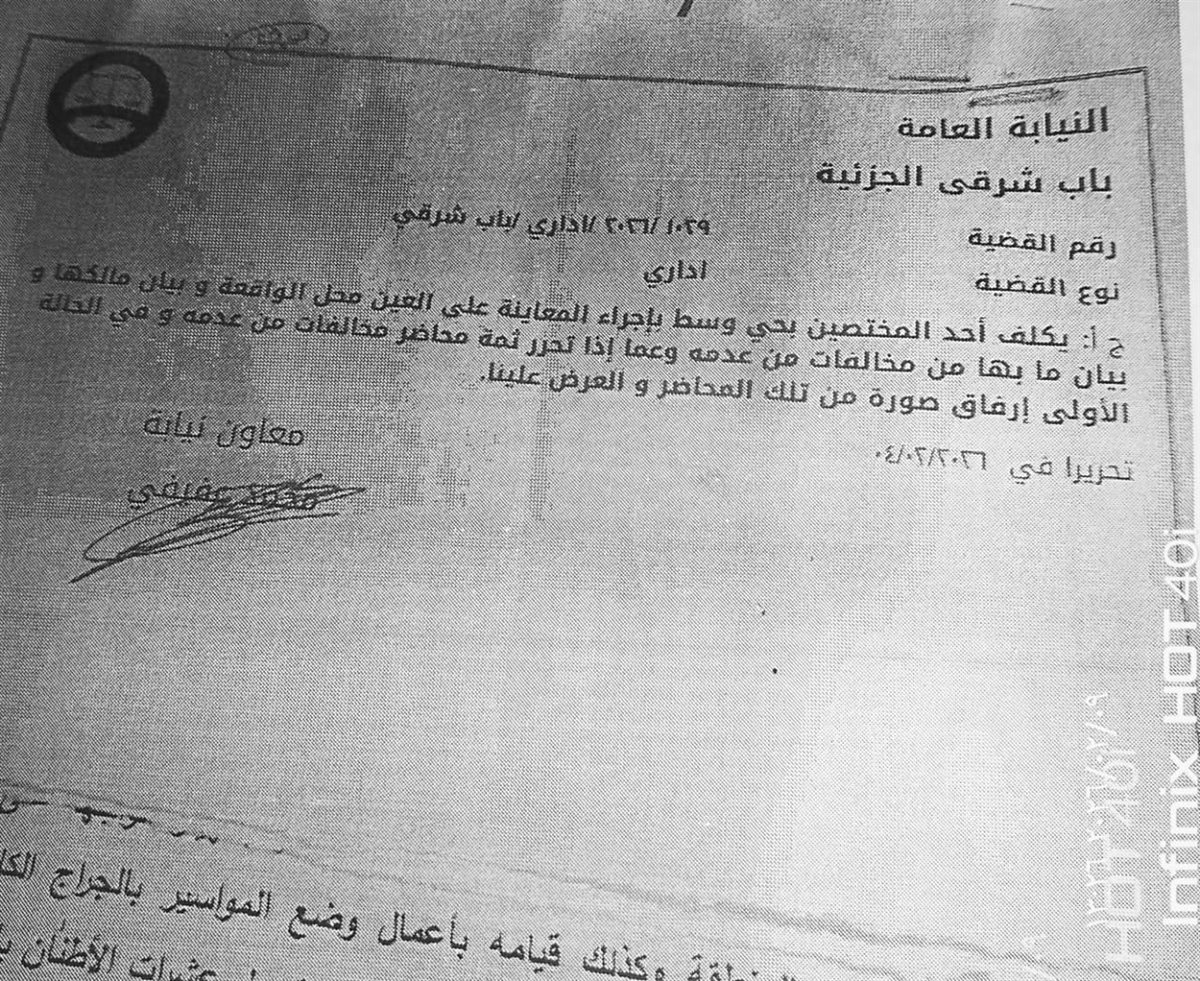 النيابة العامة
باب شرقى الجزئية
رقم القضية ١٠٢٩ /٢٠٢٦/اداري /باب شرقي
نوع القضية اداري
ج أ: يكلف أحد المختصين بحي وسط بإجراء المعاينة على العين محل الواقعة و بيان مالكها و
بيان ما بها من مخالفات من عدمه وعما إذا تحرر ثمة محاضر مخالفات من عدمه و في الحالة
الأولى إرفاق صورة من تلك المحاضر و العرض علينا.
تحريرا في ٠٤/٠٢/٢٠٢٦
معاون نيابة
عفيفي
وكذلك قيامه بأعمال وضع المواسير بالجراج
عشرات الأطنان
Infinix HOT 40i
HOT 40i